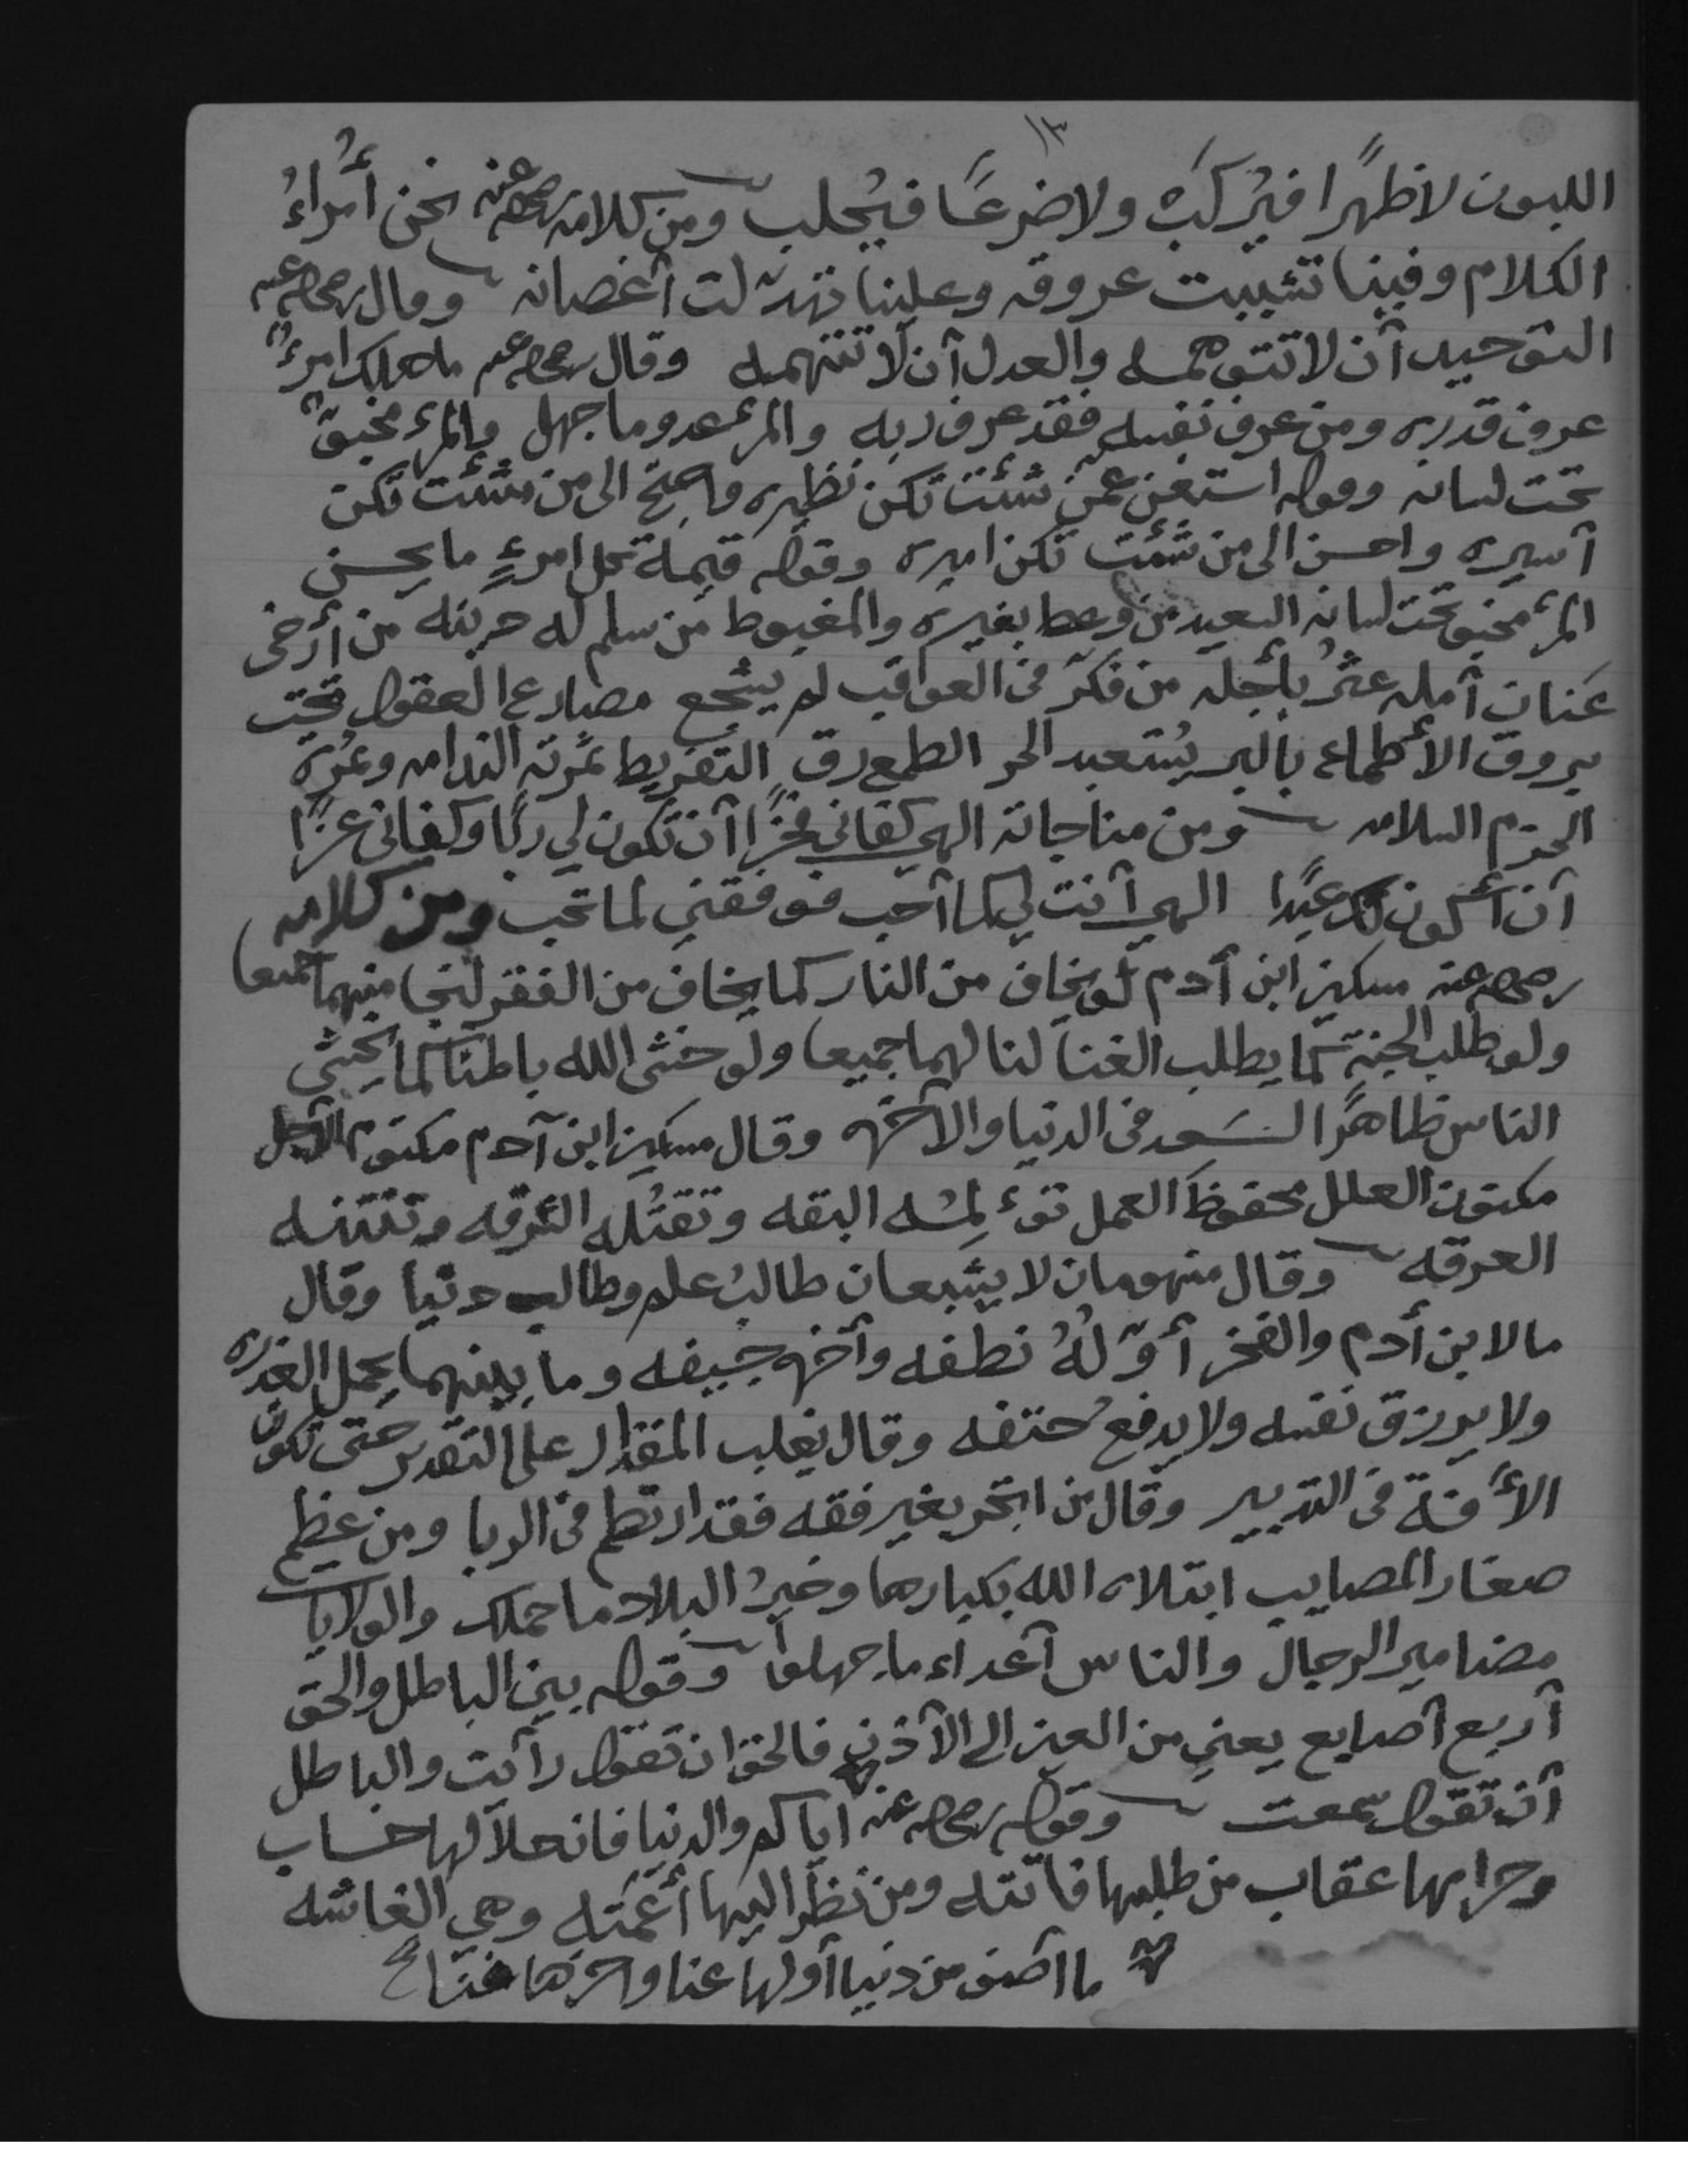 ١٣
اللبون لا ظهرًا فيُركَبُ ولا ضرعًا فيُحلب ومن كلامه رضي الله عنه نحن أُمراءُ
الكلام وفينا تشببت عروقه وعلينا تهدّلت أغصانه وقال رضي الله عنه
التوحيد أن لا تتوهمه والعدل أن لا تتهمه وقال رضي الله عنه ما هلك امرءٌ
عرف قدره ومن عرف نفسه فقد عرف ربه والمرء عدو ما جهل والمرء مخبوٌّ
تحت لسانه وقوله استغن عمّن شئت تكن نظيره واحتج الى من شئت تكن
أسيره واحسن الى من شئت تكن اميره وقوله قيمة كل امرءٍ ما يحسن
المرء مخبو تحت لسانه السعيد من وعظ بغيره والمغبوط من سلم له دينه من أرخى
عنان أمله عثرُ بأجله من فكّر في العواقب لم يشجع مصارع العقول تحت
بروق الأطماع بالبر يُستعبد الحر الطمع رق التفريط ثمرته الندامه وثمرة
الحزم السلامه ومن مناجاته الهي كفاني فخرًا أن تكون لي ربًا وكفاني عزًا
أن أكون لك عبدًا الهي أنت لي كما أحب فوفقني لما تحب ومن كلامه
رضي الله عنه مسكين ابن أدم لو يخاف من النار كما يخاف من الفقر لنجا منهما جميعا
ولو طلب الجنة كما يطلب الغنا لنا لهما جميعا ولو خشى الله باطنًا كما يخشى
الناس ظاهرًا لسَعد في الدنيا والآخره وقال مسكين ابن آدم مكتوم الأجل
مكنون العلل محفوظ العمل تؤلمُه البقه وتقتُله الشرقه وتنتنه
العرقه وقال منهومان لا يشبعان طالبُ علم وطالب دنيا وقال
ما لابن أدم والفخر أوّلهُ نطفه وأخره جيفه وما بينهما يحمل العذره
ولا يرزق نفسه ولا يدفع حتفه وقال يغلب المقدار على التقدير حتى تكون
الأفة في التدبير وقال من اتجر بغير فقه فقد ارتطم في الربا ومن عظم
صغار المصايب ابتلاه الله بكبارها وخيرُ البلاد ما حملك والولايات
مضامير الرجال والناس أعداء ما جهلوا وقوله بين الباطل والحق
أربع أصابع يعني من العين الى الأذن فالحق ان تقول رأيت والباطل
أن تقول سمعت وقوله رضي الله عنه اياكم والدنيا فان حلالها حساب
وحرامها عقاب من طلبها فاتته ومن نظر اليها أعمته وهي الغاشه
ما أصف من دنيا أولها عنا واخرها فنا